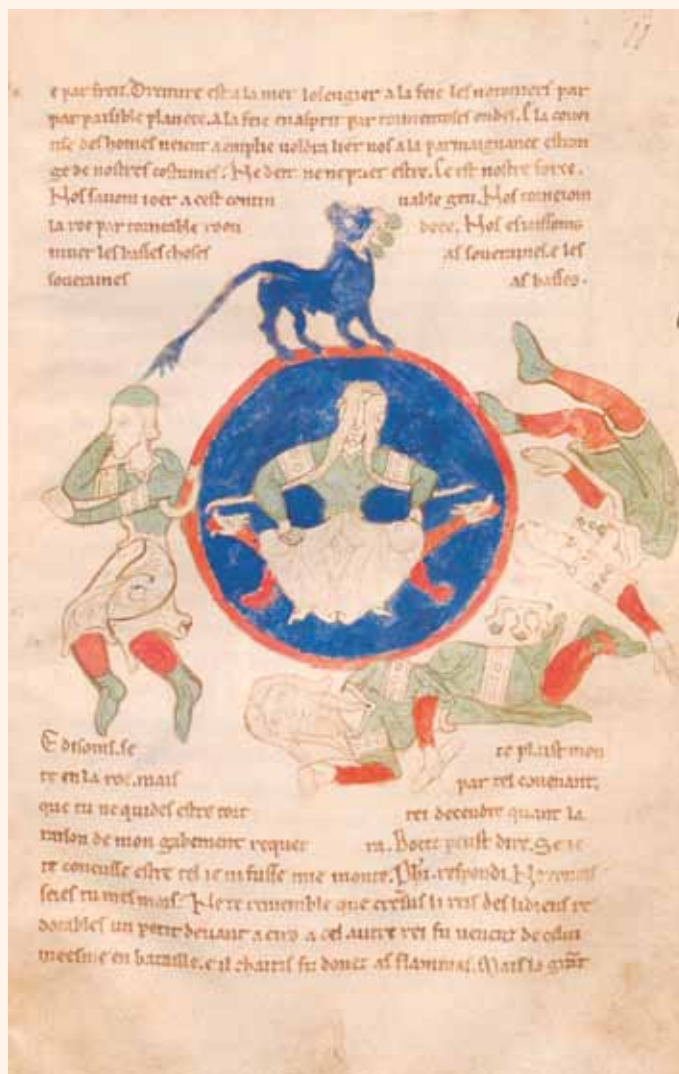 e par freit. Dreiture est a la mer losengier a la feie les notoniers par
par paisible planece. a la feie en asprir par tormentoses ondes. E la couei
tise des homes neient aemplie uoldra lier nos a la parmaignance estran
ge de nostres costumes. Ne deit ne ne puet estre. Ce est nostre force.
Nos sauom ioer a cest contin uable geu. Nos torneiom
la roe par torneable roon dece. Nos esioissoms
muer les basses choses as soueraines. e les
soueraines as basses.
E disoms. se te plaist mon
te en la roe. mais par tel couenant.
que tu ne quides estre tort rei decendre quant la
raison de mon gabement requer ra. Boece puist dire. Se ie
te coneusse estre tel ie ni fusse mie monte. Phi. respondi. Ne
seies tu mes mors. Ne te remembre que cresus li reis des lidiens re
dotables un petit deuant a ciro a cel autre rei fu uencut de celui
meesme en bataille. e il chaitis fu donez as flammas. Mais la grant